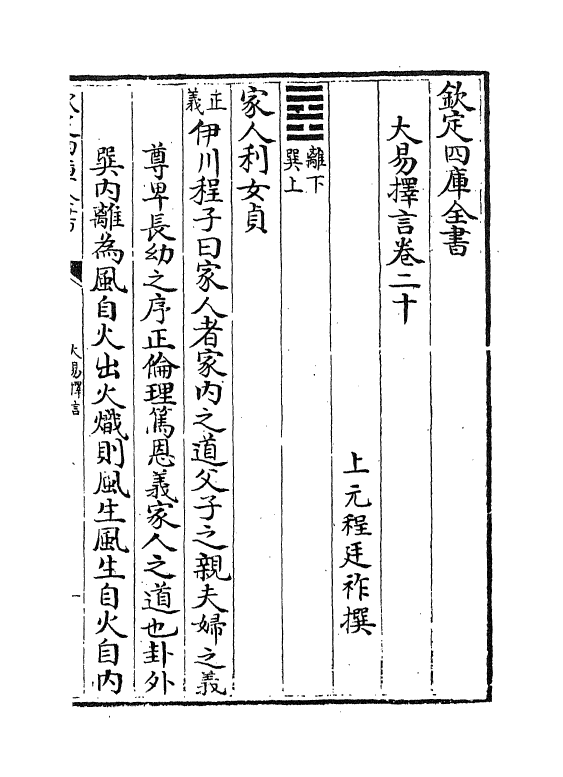 欽定四庫全書
大易擇言卷二十
上元程廷祚撰
離下
巽上
家人利女貞
正義
伊川程子曰家人者家内之道父子之親夫婦之義
尊卑長幼之序正倫理篤恩義家人之道也卦外
巽内離為風自火出火熾則風生風生自火自内
大易擇言
一